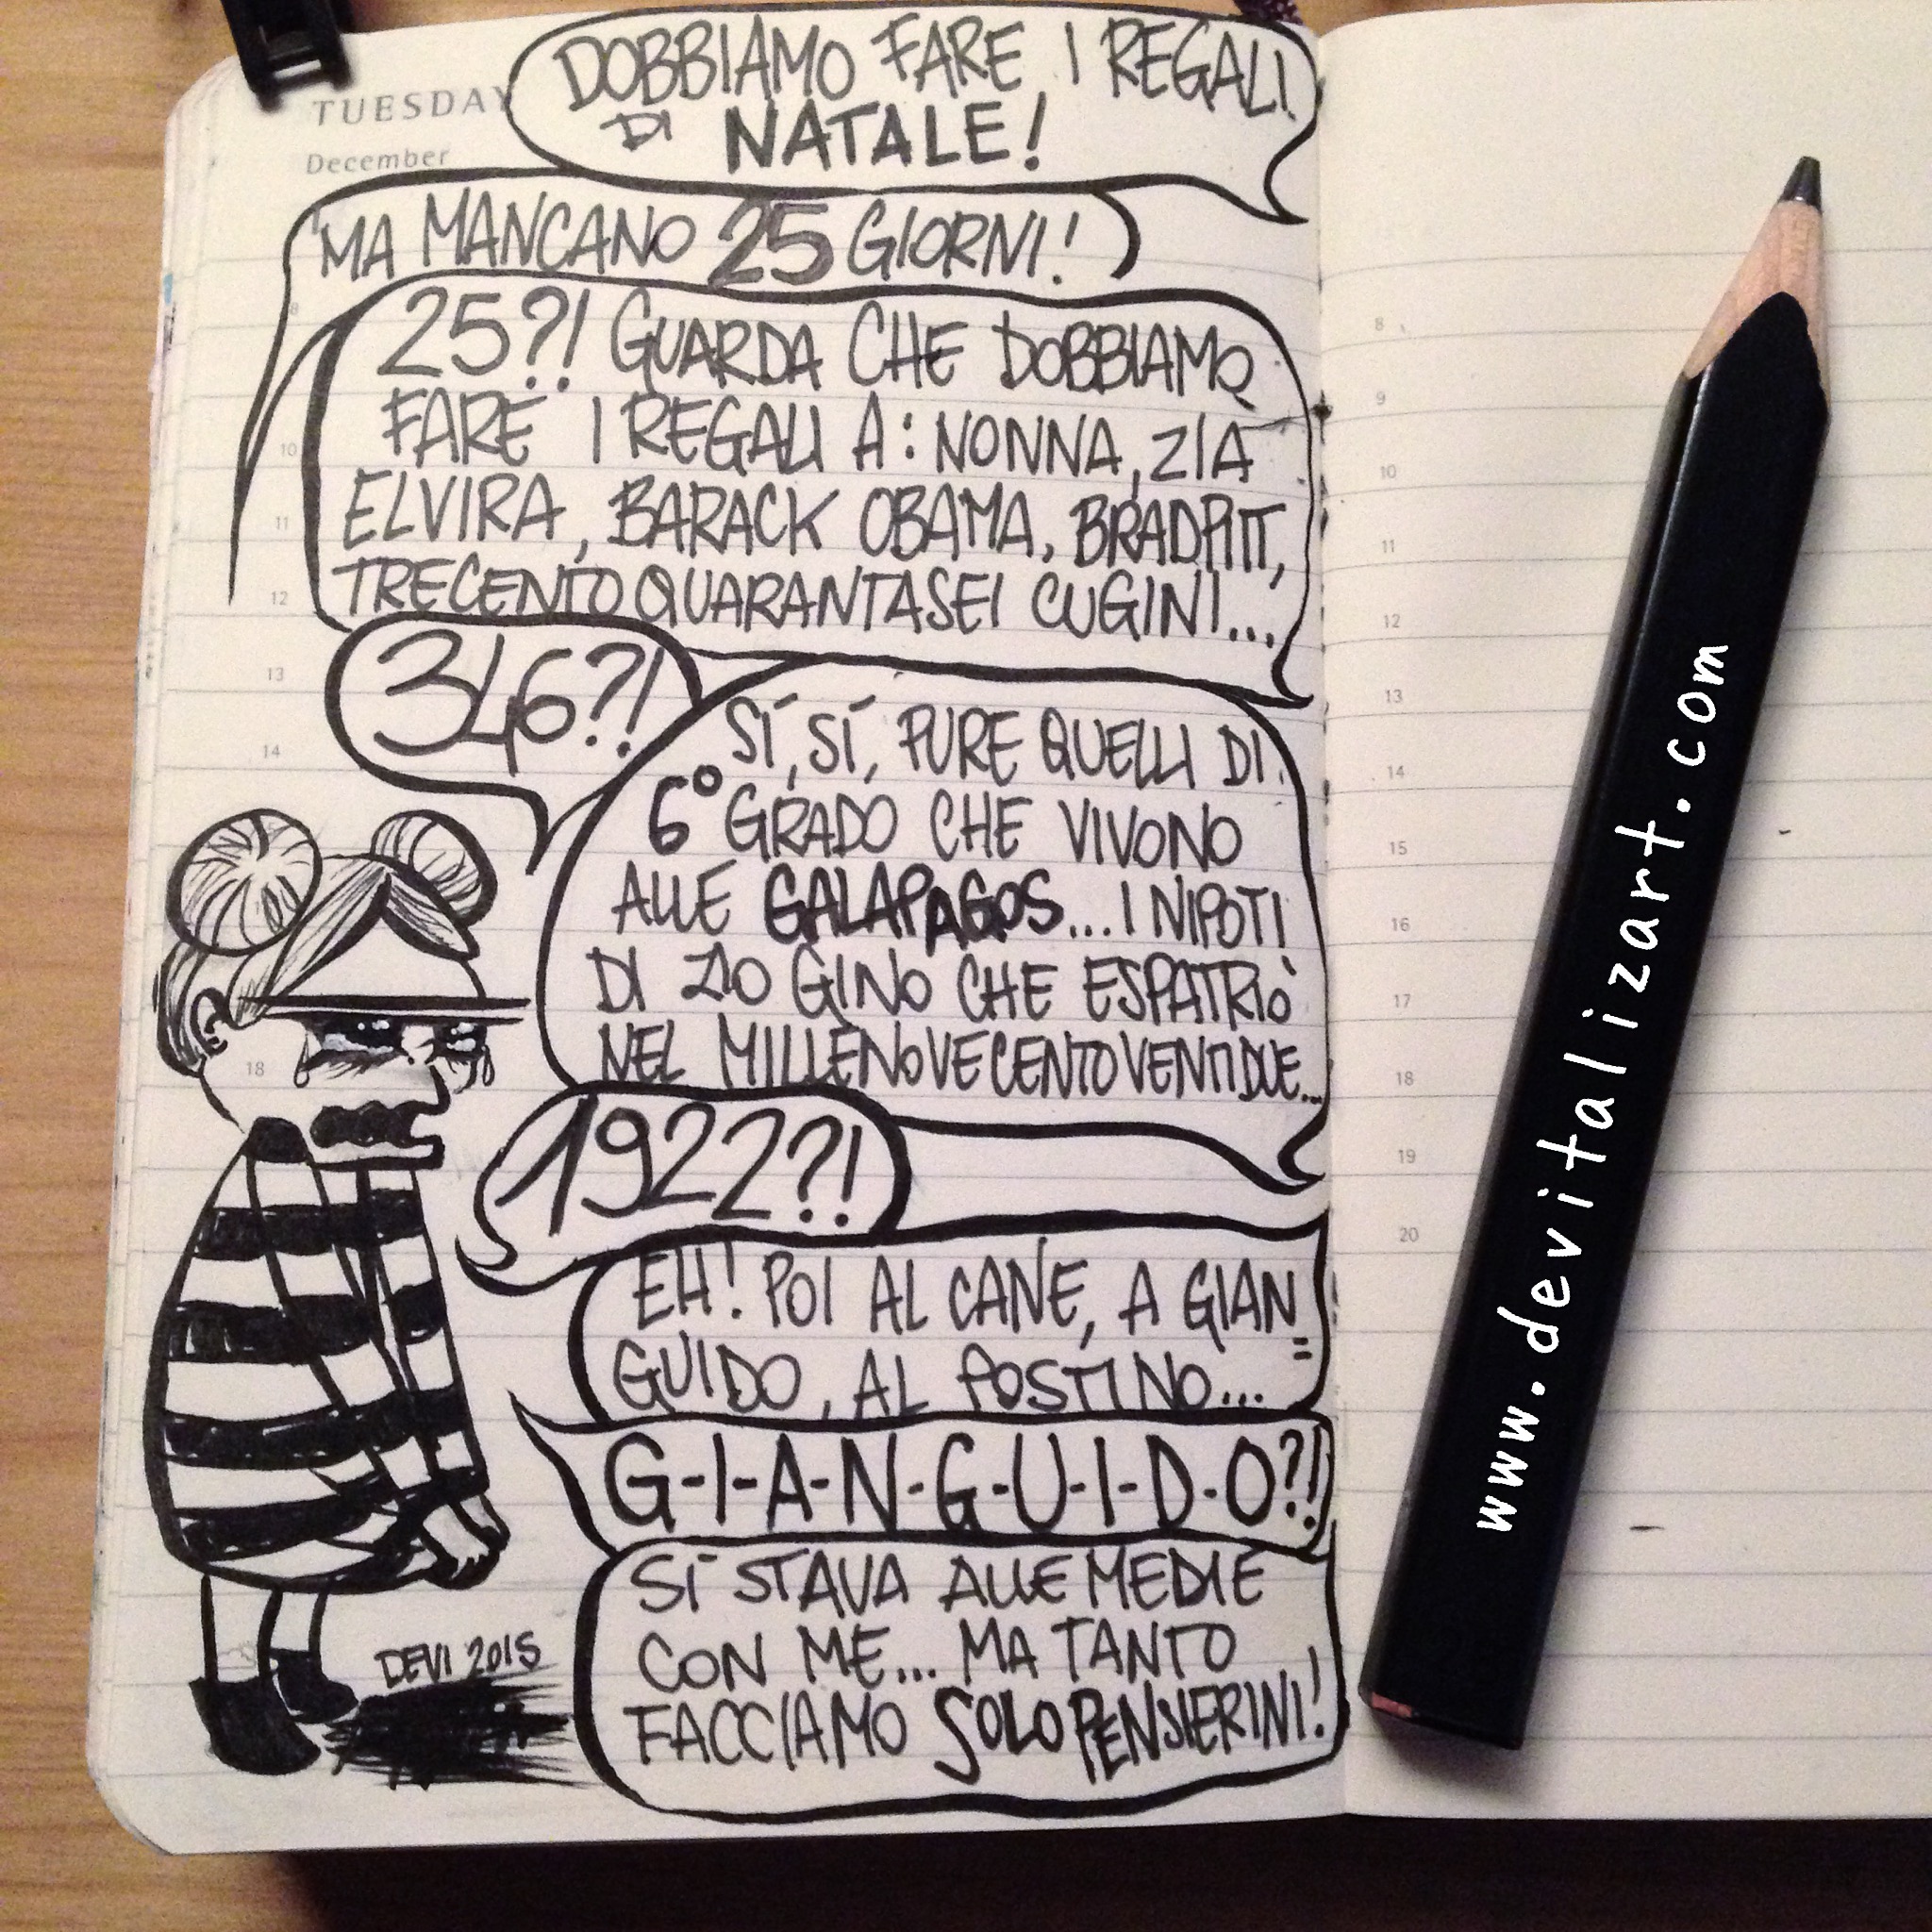 TUESDAY
December
DOBBIAMO FARE I REGALI
DI NATALE!
MA MANCANO 25 GIORNI!
25?! GUARDA CHE DOBBIAMO
FARE I REGALI A: NONNA, ZIA
ELVIRA, BARACK OBAMA, BRADPITT,
TRECENTOQUARANTASEI CUGINI...
346?!
SÍ, SÍ, PURE QUELLI DI
6° GRADO CHE VIVONO
ALLE GALAPAGOS... I NIPOTI
DI ZIO GINO CHE ESPATRIÒ
NEL MILLENOVECENTOVENTIDUE...
1922?!
EH! POI AL CANE, A GIAN=
GUIDO, AL POSTINO...
G-I-A-N-G-U-I-D-O?!
SÍ STAVA ALLE MEDIE
CON ME... MA TANTO
FACCIAMO SOLO PENSIERINI!
DEVI 2015
10
11
12
13
14
18
8
9
10
11
12
13
14
15
16
17
18
19
20
www.devitalizart.com